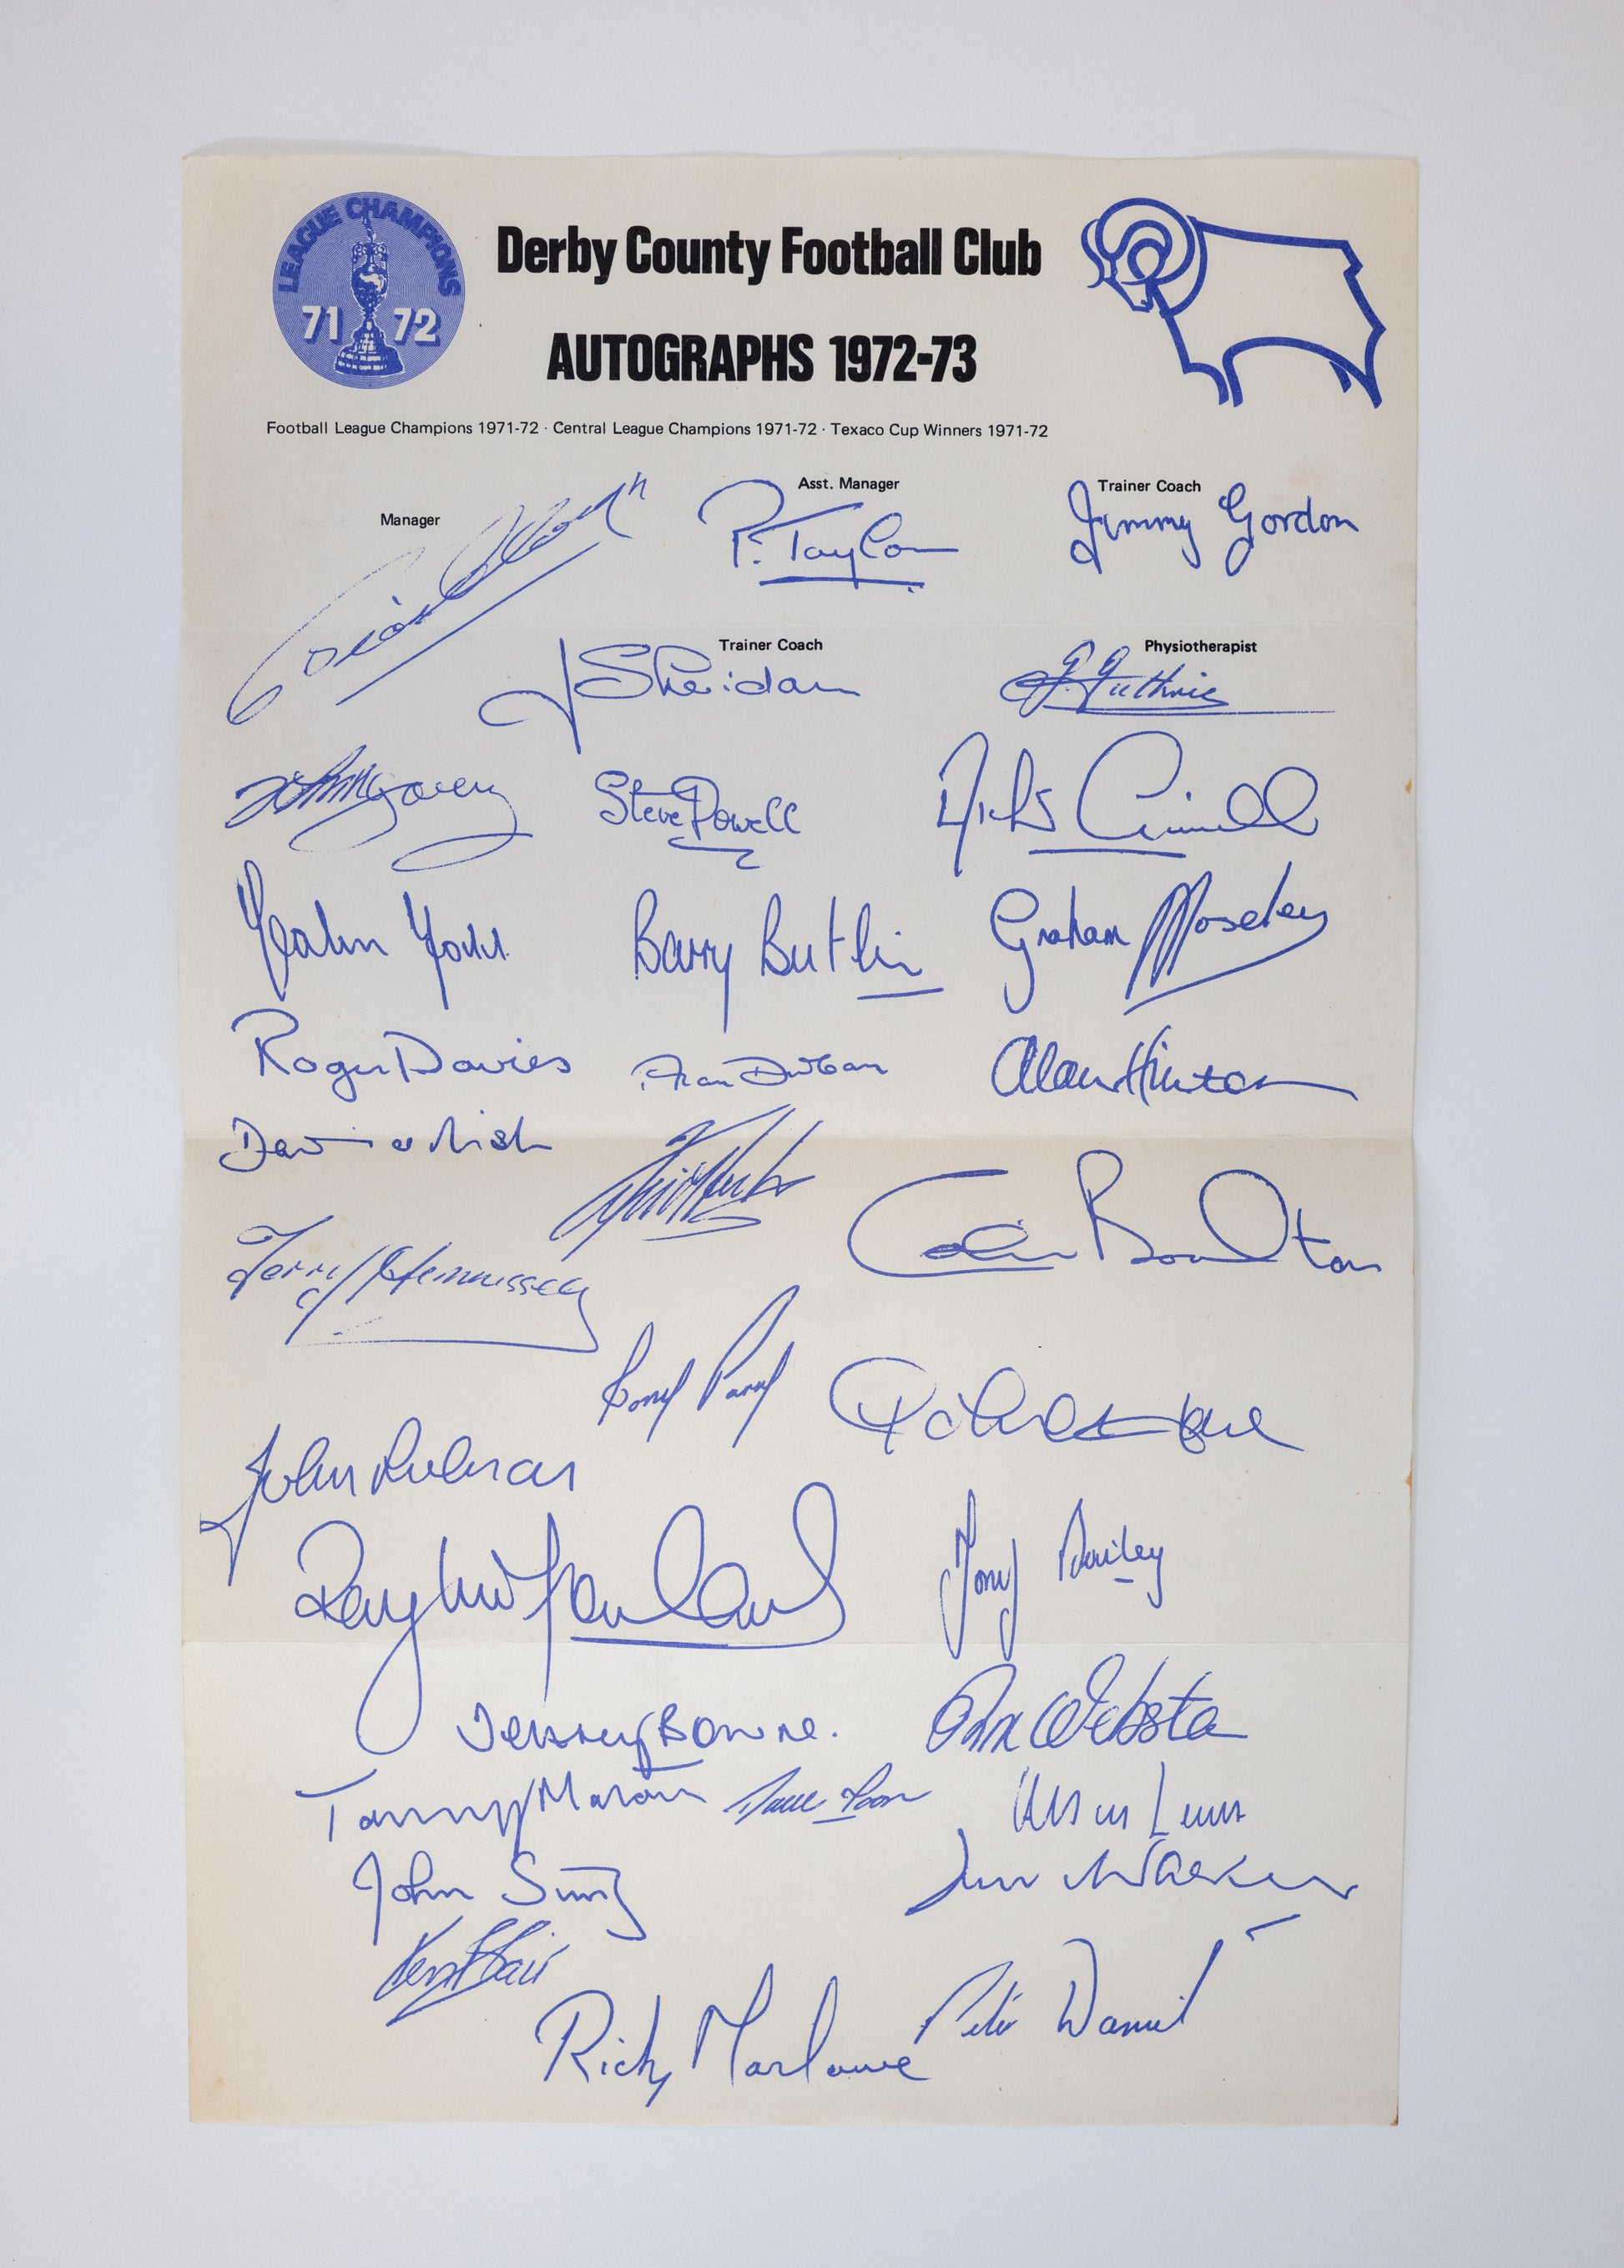 LEAGUE CHAMPIONS
71 72
Derby County Football Club
AUTOGRAPHS 1972-73
Football League Champions 1971-72 · Central League Champions 1971-72 · Texaco Cup Winners 1971-72
Manager
Asst. Manager
Trainer Coach
Brian Clough
P. Taylor
Jimmy Gordon
Trainer Coach
Physiotherapist
J Sheridan
G. Guthrie
John McGovern
Steve Powell
Colin Todd
Barry Butlin
Graham Moseley
Roger Davies
Alan Durban
Alan Hinton
David Nish
Colin Boulton
Terry Hennessey
John Robson
Roy McFarland
Tony Bailey
Jeffrey Bourne.
Ron Webster
Tommy Mason
Alan Lewis
John Sims
Jim Walker
Peter Daniel
Ricky Marlowe